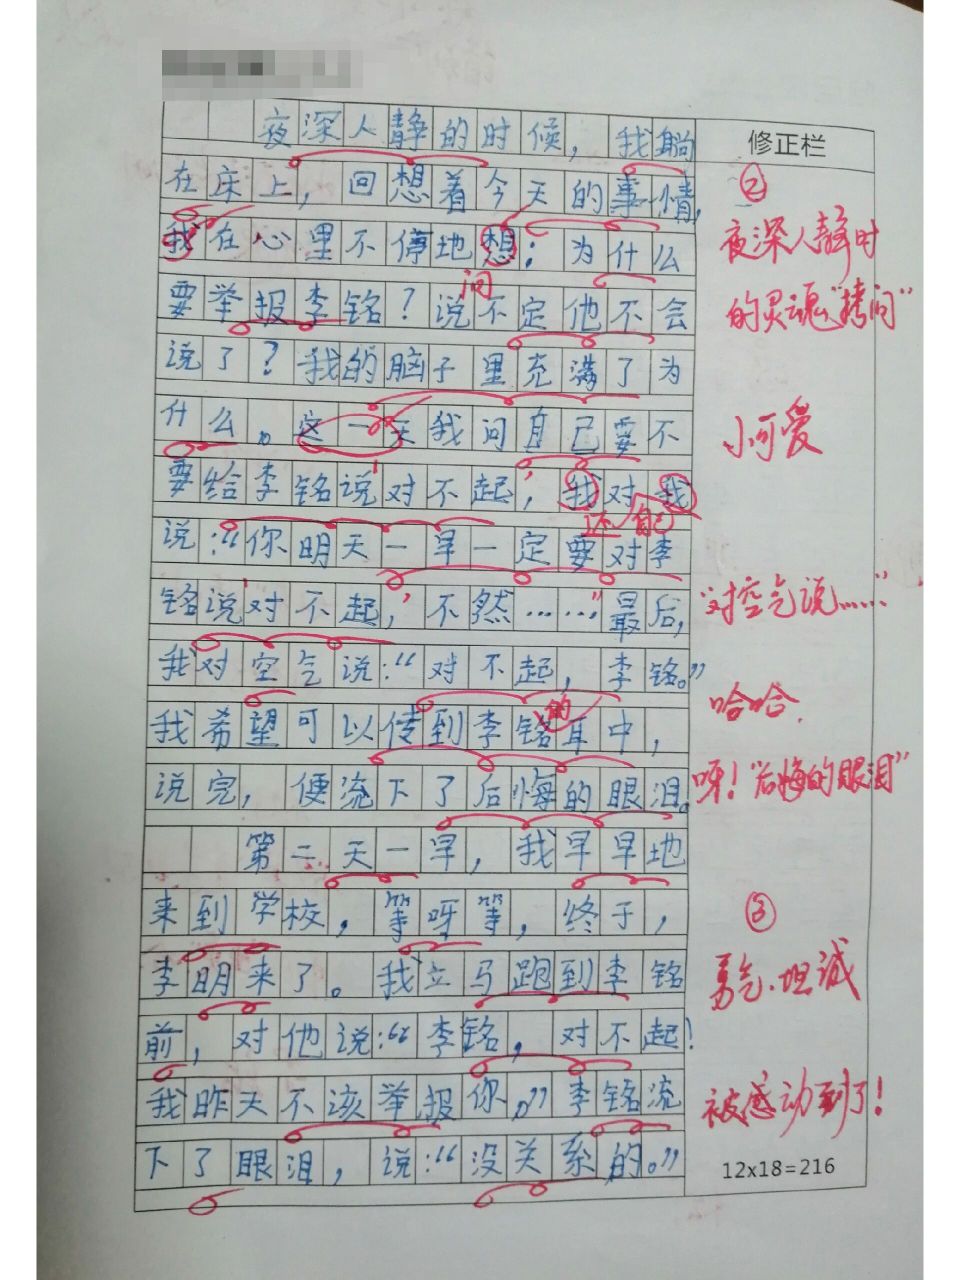 夜深人静的时候，我躺
修正栏
在床上，回想着今天的事情，
②
我在心里不停地想：为什么
夜深人静时
问
要举报李铭？说不定他不会
的灵魂"拷问"
说了？我的脑子里充满了为
什么。这一天我问自己要不
小可爱
要给李铭说'对不起'，我对我
还 自己
说："你明天一早一定要对李
铭说'对不起'，不然……"最后，
"对空气说……"
我对空气说："对不起，李铭。"
哈哈.
的
我希望可以传到李铭耳中，
说完，便流下了后悔的眼泪。
呀！"后悔的眼泪"
第二天一早，我早早地
来到学校，等呀等，终于，
③
李明来了。我立马跑到李铭
勇气.坦诚
前，对他说："李铭，对不起！
我昨天不该举报你。"李铭流
被感动到了！
下了眼泪，说："没关系的。"
12x18=216